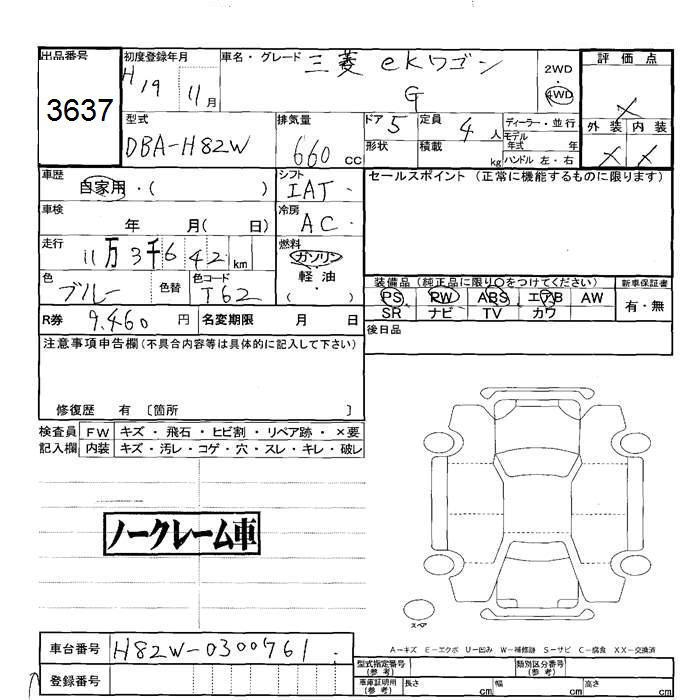 出品番号 初度登録年月 車名・グレード 評価点
3637 H19 11月 三菱 ekワゴン G 2WD ・ 4WD X
外装 内装
X X
型式 排気量 ドア 5 定員 4人 ディーラー・並行
DBA-H82W 660cc 形状 積載 kg モデル年式 年
ハンドル 左・右
車歴 自家用・( ) シフト IAT セールスポイント (正常に機能するものに限ります)
車検 年 月( 日) 冷房 AC
走行 11万3千642km 燃料 ガソリン
軽油
( )
色 ブルー 色替 色コード T62 装備品 (純正品に限り○をつけてください) 新車保証書
PS PW ABS エアB AW 有・無
SR ナビ TV カワ
R券 9,460円 名変期限 月 日 後日品
注意事項申告欄(不具合内容等は具体的に記入して下さい)
修復歴 有 〔箇所 〕
検査員 FW キズ・飛石・ヒビ割・リペア跡・×要
記入欄 内装 キズ・汚レ・コゲ・穴・スレ・キレ・破レ
ノークレーム車
スペア
A-キズ E-エクボ U-凹み W-補修跡 S-サビ C-腐食 XX-交換済
車台番号 H82W-0300761
型式指定番号(参考) 類別区分番号(参考)
登録番号 車庫証明用(参考) 長さ cm 幅 cm 高さ cm